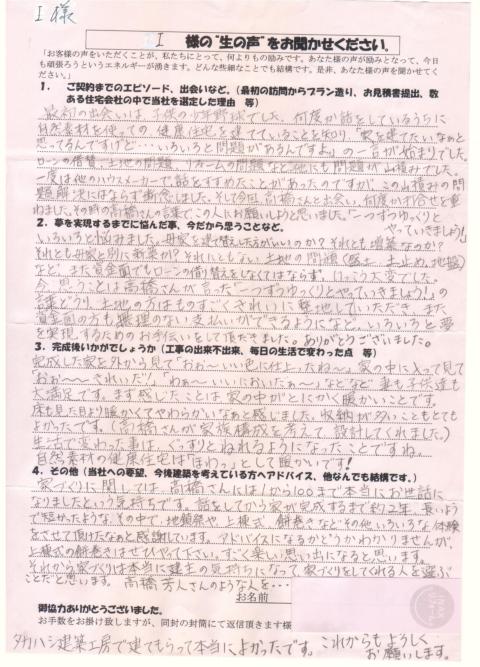 I 様
I 様の"生の声"をお聞かせください。
「お客様の声をいただくことが、私たちにとって、何よりもの励みです。あなた様の声が励みとなって、今日
も頑張ろうというエネルギーが湧きます。どんな些細なことでも結構です。是非、あなた様の声を聞かせてく
ださい。」
1. ご契約までのエピソード、出会いなど。(最初の訪問からプラン造り、お見積書提出、数
ある住宅会社の中で当社を選定した理由 等)
最初の出会いは子供の少年野球でした。何度か話をしているうちに
自然素材を使っての健康住宅を建てていることを知り、「家を建てたいなぁと
思ってるんですけど…いろいろと問題があるんですよ」の一言が始まりでした。
ローンの借替、土地の問題、リフォームの問題など他にも問題が山積みでした。
一度は他のハウスメーカーで話をすすめたことがあったのですが、この山積みの問
題解決にはならず断念しました。そして今回高橋さんと出会い、何度か打合せを重
ねました。その時の高橋さんの言葉でこの人にお願いしようと思いました。「一つずつゆっくりと
やっていきましょう!」
2. 夢を実現するまでに悩んだ事、今だから思うことなど。
いろいろと悩みました。母家を建て替えした方がいいのか?それとも増築なのか?
それとも母家と別に新築か?それにともない土地の問題(盛土、土止め、地盤)
など、また資金面でもローンの借り替えをしなくてはならず、けっこう大変でした。
今、思うことは高橋さんが言った"一つずつゆっくりとやっていきましょう!"の
言葉どうり、土地の方はものすごくきれいに整地していただき、また
資金面の方も無理のない支払いができるようになど、いろいろと夢
を実現するためのお手伝いをして頂きました。ありがとうございました。
3. 完成後いかがでしょうか(工事の出来不出来、毎日の生活で変わった点 等)
完成した家を外から見て「おぉ~いい色に仕上ったね~。」家の中に入って見て
「おぉ~~きれいだ!」「わぁ~いいにおいだぁ~」などなど妻も子供達も
大満足です。まず感じたことは家の中がとにかく暖かいことです。
床も見た目より暖かくてやわらかいなぁと感じました。収納が多いこともとても
よかったです。(高橋さんが家族構成を考えて設計してくれました。)
生活で変わった事は、ぐっすりとねれるようになったことですね。
自然素材の健康住宅は"ほわっ"として暖かいです!
4. その他(当社への要望、今後建築を考えている方へアドバイス、他なんでも結構です。)
家づくりに関しては、高橋さんには1から100まで本当にお世話に
なりましたという気持ちです。話をしてから家が完成するまで約2年、長いよう
で短かったような、その中で、地鎮祭や上棟式、餅巻きなどその他いろいろな体験
をさせて頂けたなぁと感謝しています。アドバイスになるかどうかわかりませんが、
上棟式の餅巻きはぜひやって下さい。すごく楽しい思い出になると思います。
それから家づくりは本当に建主の気持ちになって、家づくりをしてくれる人を選ぶ
ことだと思います。高橋芳人さんのような人を・・・
お名前
御協力ありがとうございました。
お手数をお掛け致しますが、同封の封筒にて返信頂きます様
タカハシ建築工房で建てもらって本当によかったです。これからもよろしく
お願いします。